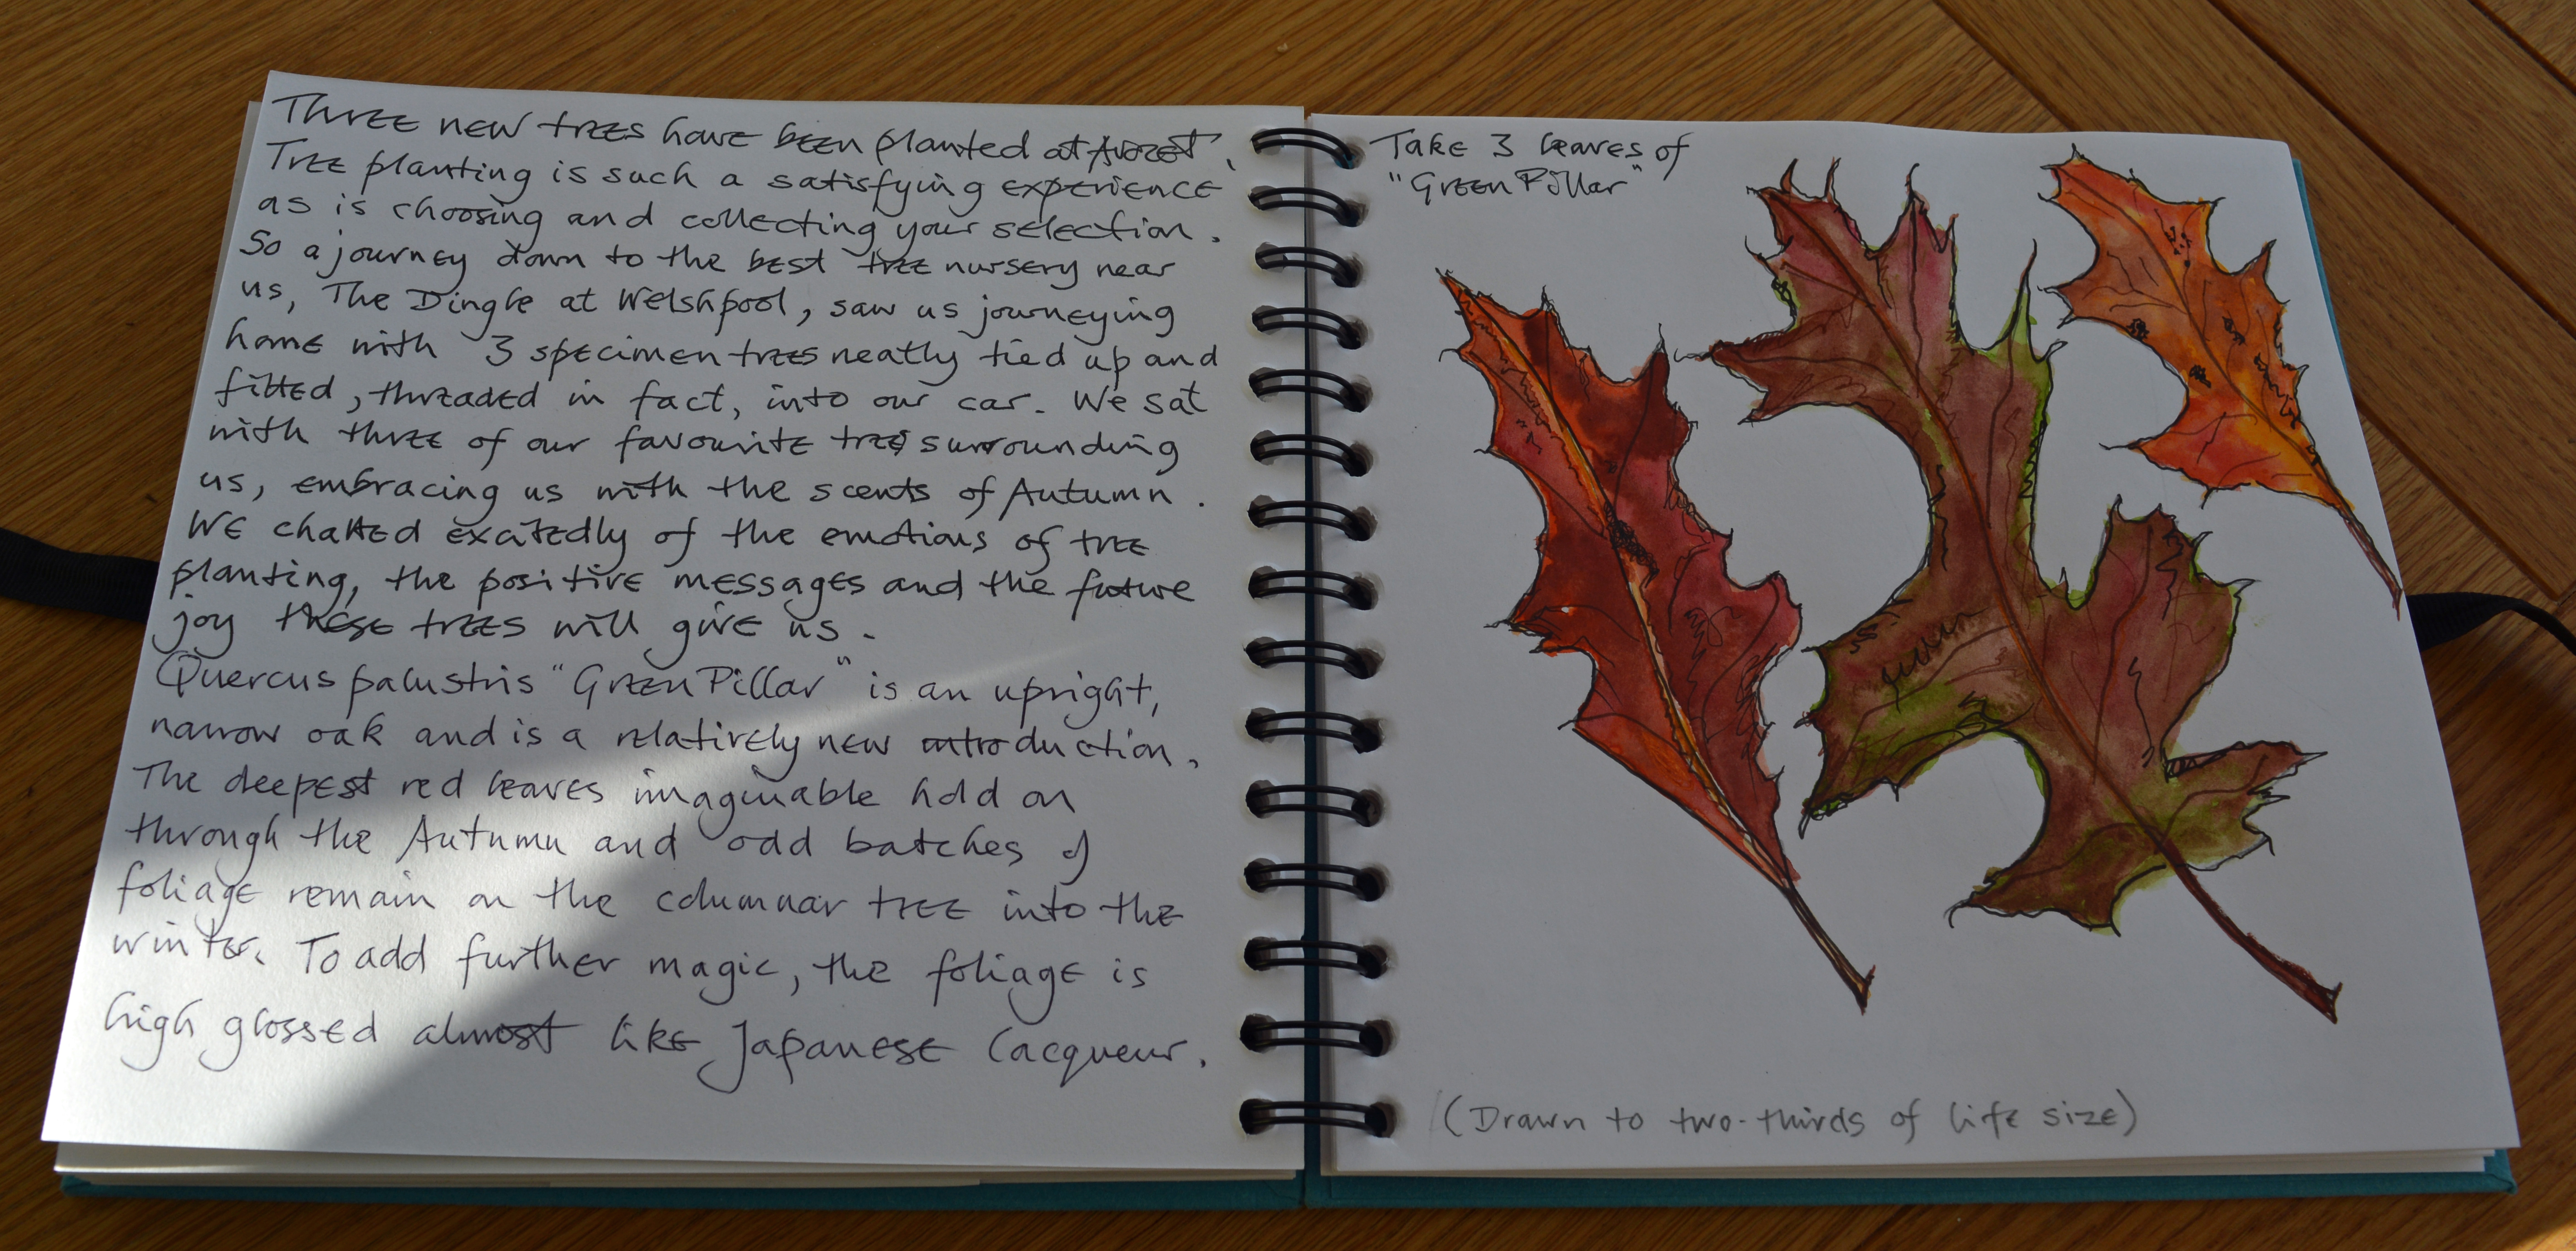 Three new trees have been planted at Avocet.
Tree planting is such a satisfying experience
as is choosing and collecting your selection.
So a journey down to the best tree nursery near
us, The Dingle at Welshpool, saw us journeying
home with 3 specimen trees neatly tied up and
fitted, threaded in fact, into our car. We sat
with three of our favourite trees surrounding
us, embracing us with the scents of Autumn.
We chatted excitedly of the emotions of tree
planting, the positive messages and the future
joy these trees will give us.
Quercus palustris "Green Pillar" is an upright,
narrow oak and is a relatively new introduction.
The deepest red leaves imaginable hold on
through the Autumn and odd batches of
foliage remain on the columnar tree into the
winter. To add further magic, the foliage is
high glossed almost like Japanese lacqueur.
Take 3 leaves of
"Green Pillar"
(Drawn to two-thirds of life size)